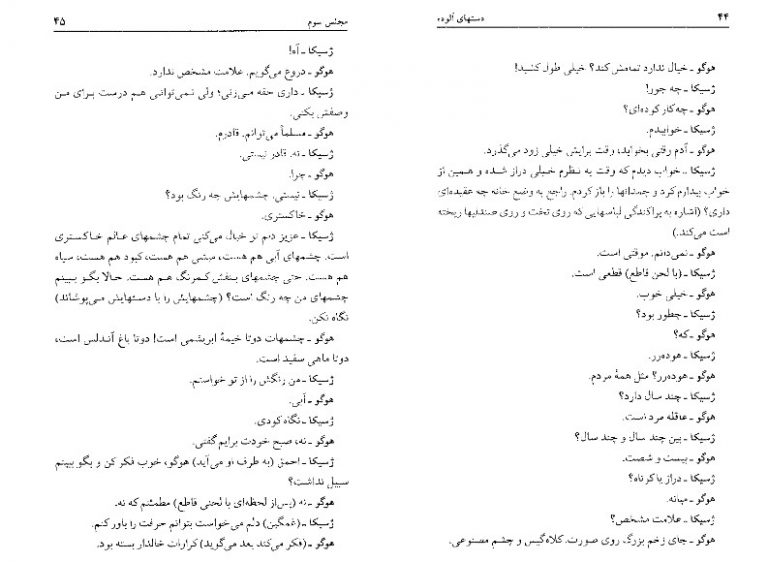 ۴۴
دستهای آلوده
هوگو ـ خیال ندارد تمامش کند؟ خیلی طول کشید!
ژسیکا ـ چه جور!
هوگو ـ چه‌کار کرده‌ای؟
ژسیکا ـ خوابیدم.
هوگو ـ آدم وقتی بخوابد، وقت برایش خیلی زود می‌گذرد.
ژسیکا ـ خواب دیدم که وقت به نظرم خیلی دراز شده و همین از
خواب بیدارم کرد و چمدانها را باز کردم. راجع به وضع خانه چه عقیده‌ای
داری؟ (اشاره به پراکندگی لباسهایی که روی تخت و روی صندلیها ریخته
است می‌کند.)
هوگو ـ نمی‌دانم. موقتی است.
ژسیکا ـ (با لحن قاطع) قطعی است.
هوگو ـ خیلی خوب.
ژسیکا ـ چطور بود؟
هوگو ـ که؟
ژسیکا ـ هوده‌رر.
هوگو ـ هوده‌رر؟ مثل همهٔ مردم.
ژسیکا ـ چند سال دارد؟
هوگو ـ عاقله مرد است.
ژسیکا ـ بین چند سال و چند سال؟
هوگو ـ بیست و شصت.
ژسیکا ـ دراز یا کوتاه؟
هوگو ـ میانه.
ژسیکا ـ علامت مشخص؟
هوگو ـ جای زخم بزرگ روی صورت. کلاه‌گیس و چشم مصنوعی.
مجلس سوم
۴۵
ژسیکا ـ آه!
هوگو ـ دروغ می‌گویم. علامت مشخص ندارد.
ژسیکا ـ داری حقه می‌زنی؛ ولی نمی‌توانی هم درست برای من
وصفش بکنی.
هوگو ـ مسلماً می‌توانم. قادرم.
ژسیکا ـ نه. قادر نیستی.
هوگو ـ چرا.
ژسیکا ـ نیستی. چشمهایش چه رنگ بود؟
هوگو ـ خاکستری.
ژسیکا ـ عزیز دلم تو خیال می‌کنی تمام چشمهای عالم خاکستری
است. چشمهای آبی هم هست، میشی هم هست، کبود هم هست، سیاه
هم هست. حتی چشمهای بنفش کمرنگ هم هست. حالا بگو ببینم
چشمهای من چه رنگ است؟ (چشمهایش را با دستهایش می‌پوشاند)
نگاه نکن.
هوگو ـ چشمهات دوتا خیمهٔ ابریشمی است! دوتا باغ آندلس است،
دوتا ماهی سفید است.
ژسیکا ـ من رنگش را از تو خواستم.
هوگو ـ آبی.
ژسیکا ـ نگاه کردی.
هوگو ـ نه، صبح خودت برایم گفتی.
ژسیکا ـ احمق (به طرف او می‌آید) هوگو، خوب فکر کن و بگو ببینم
سبیل نداشت؟
هوگو ـ نه (پس از لحظه‌ای با لحنی قاطع) مطمئنم که نه.
ژسیکا ـ (غمگین) دلم می‌خواست بتوانم حرفت را باور کنم.
هوگو ـ (فکر می‌کند بعد می‌گوید) کراوات خالدار بسته بود.